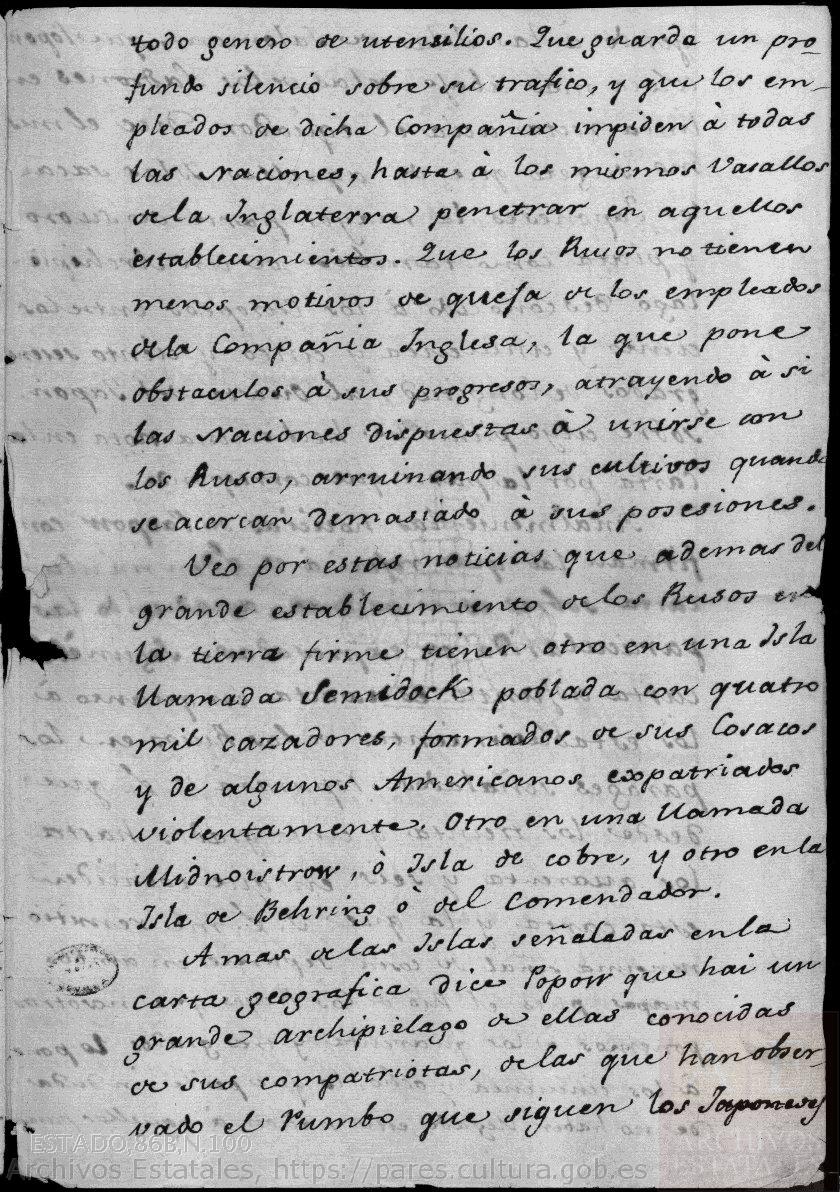 todo genero de utensilios. Que guarda un pro-
fundo silencio sobre su trafico, y que los em-
pleados de dicha Compañia impiden à todas
las Naciones, hasta à los mismos Vasallos
de la Inglaterra penetrar en aquellos
establecimientos. Que los Rusos no tienen
menos motivos de queja de los empleados
de la Compañia Inglesa, la que pone
obstaculos à sus progresos, atrayendo à si
las Naciones dispuestas à unirse con
los Rusos, arruinando sus cultivos quando
se acercan demasiado à sus posesiones.
Veo por estas noticias que ademas del
grande establecimiento de los Rusos en
la tierra firme tienen otro en una Isla
llamada Semidock poblada con quatro
mil cazadores, formados de sus Cosacos
y de algunos Americanos expatriados
violentamente. Otro en una llamada
Midnoistrow, ò Isla de cobre, y otro en la
Isla de Behring ò del Comendador.
A mas de las Islas señaladas en la
carta geografica dice Popow que hai un
grande archipielago de ellas conocidas
de sus compatriotas, de las que han obser-
vado el rumbo que siguen los Japoneses
ESTADO,86B,N.100
Archivos Estatales, https://pares.cultura.gob.es
ARCHIVOS
ESTATALES